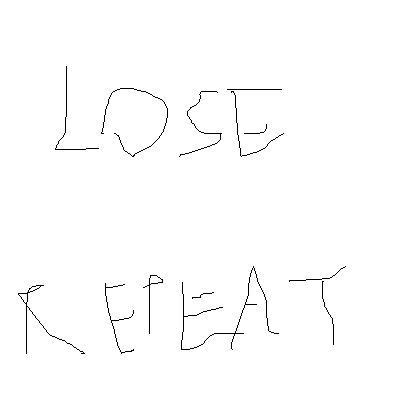 LOSE
REPEAT